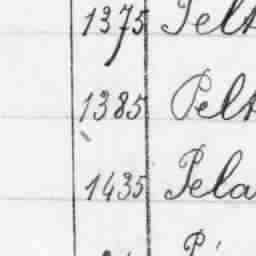 1375 Pelt
1385 Pelt
1435 Pela